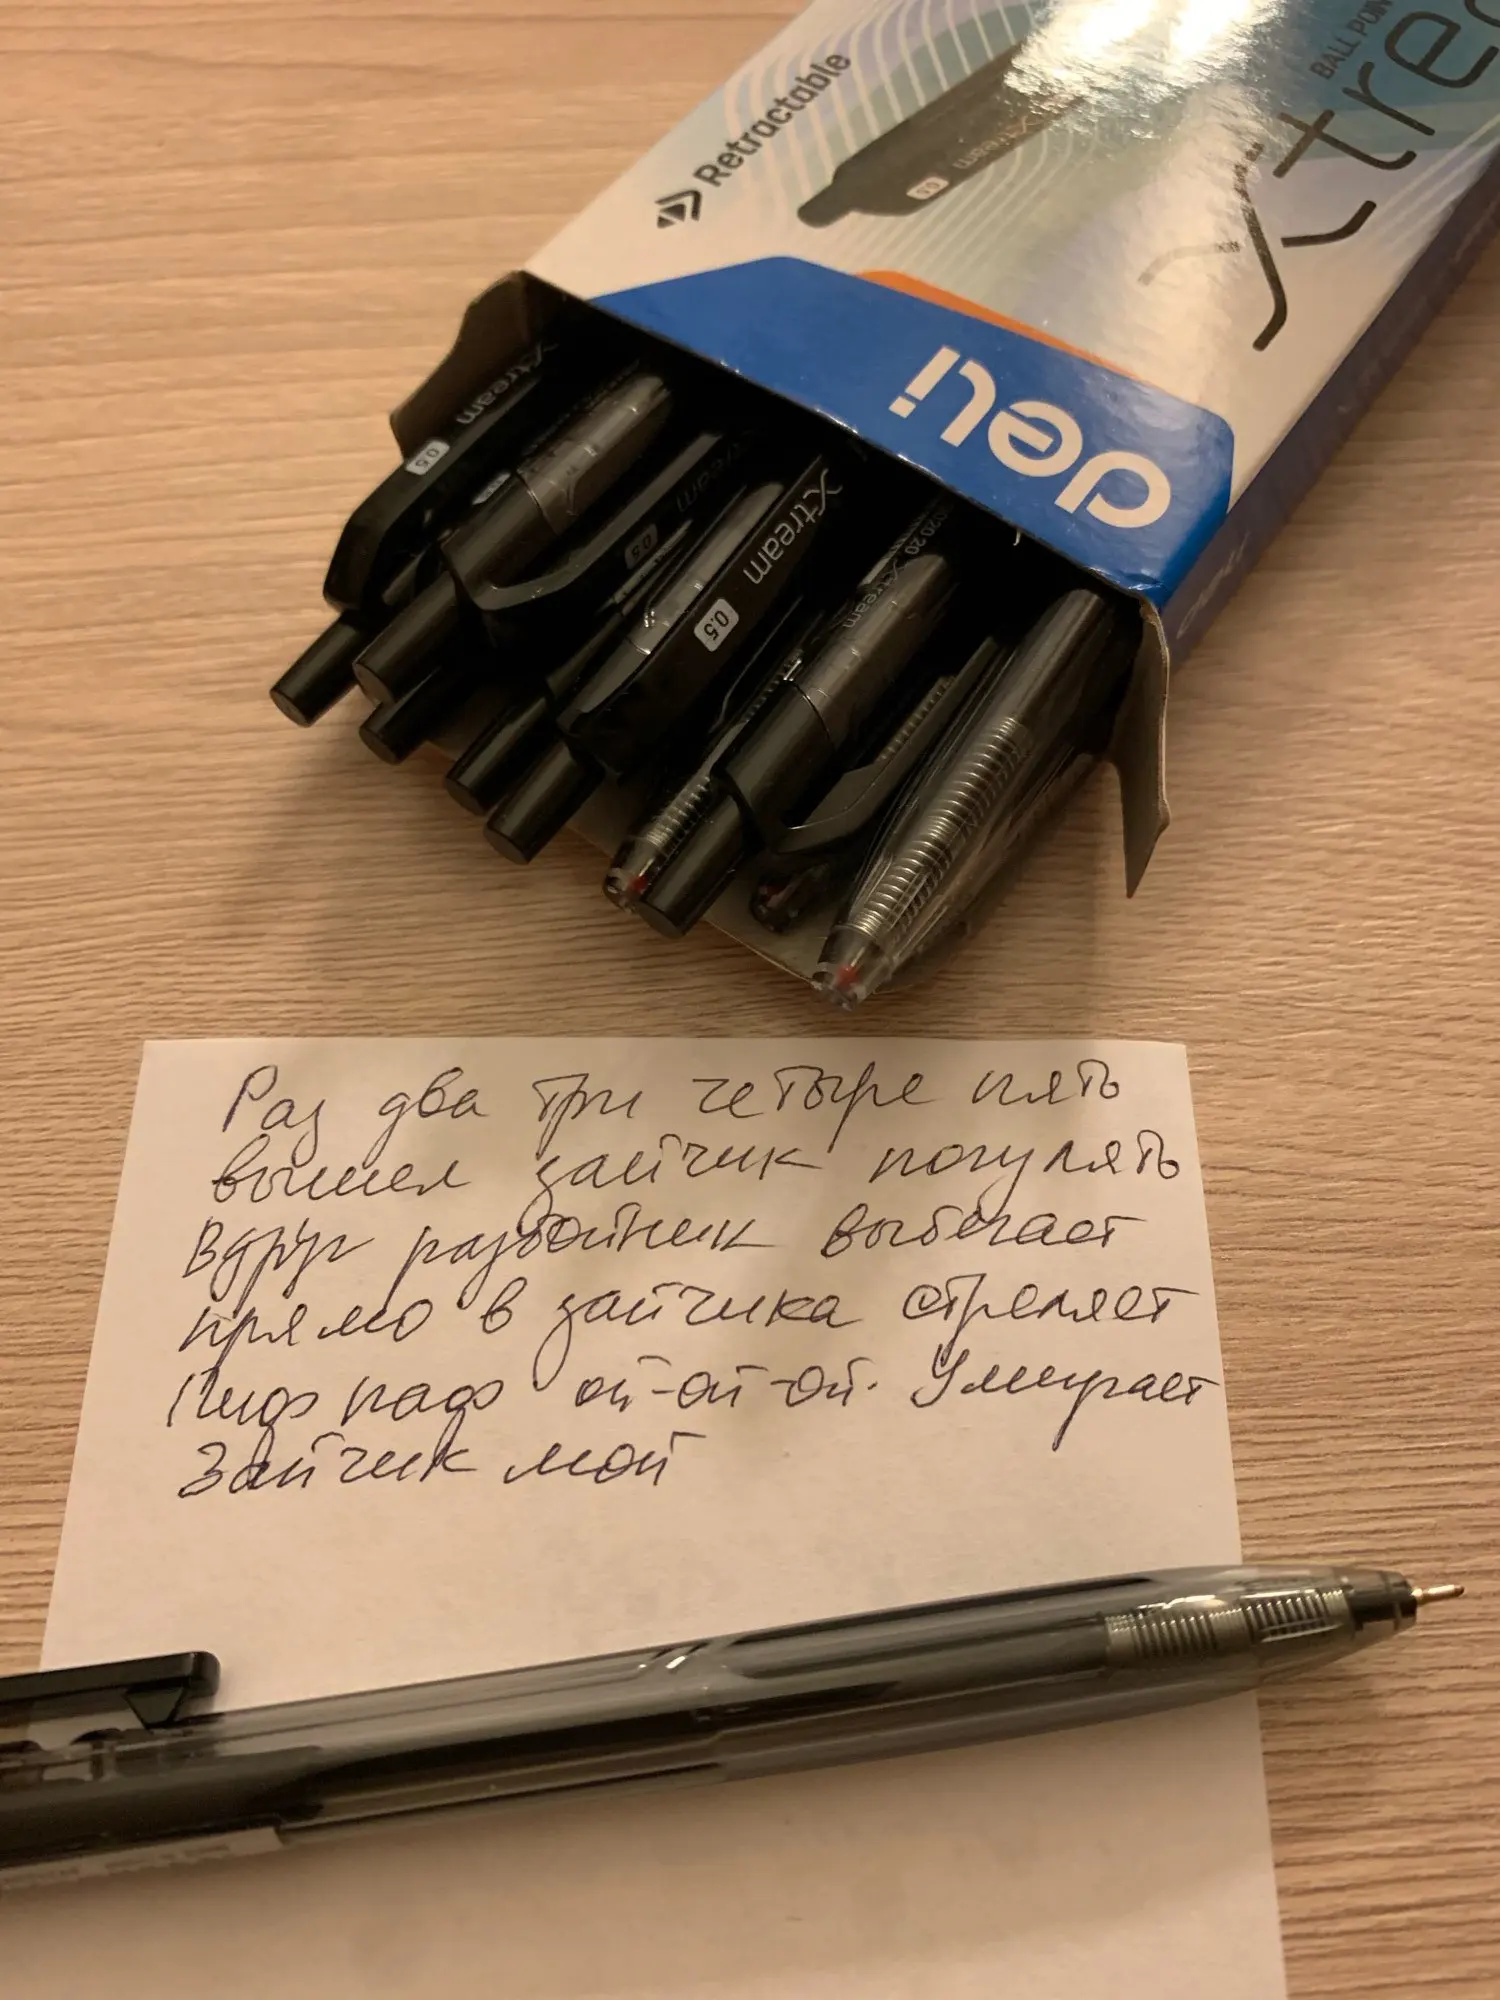 Retractable
BALL POIN
Xtrea
Xtream
0.5
deli
Xtream
0.5
Xtream
0.5
Xtream
0.5
Xtream
Раз два три четыре пять
вышел зайчик погулять
Вдруг разбойник выбегает
прямо в зайчика стреляет
Пиф паф ой-ой-ой. Умирает
Зайчик мой